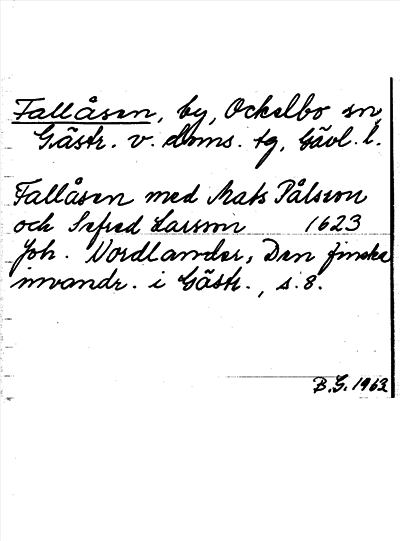 Fallåsen, by, Ockelbo sn,
Gästr. v. doms. tg, Gävl. l.
Fallåsen med Mats Pålsson
och Sefred Larson 1623
Joh. Nordlander, Den finska
invandr. i Gästr., s. 8.
B.G. 1963